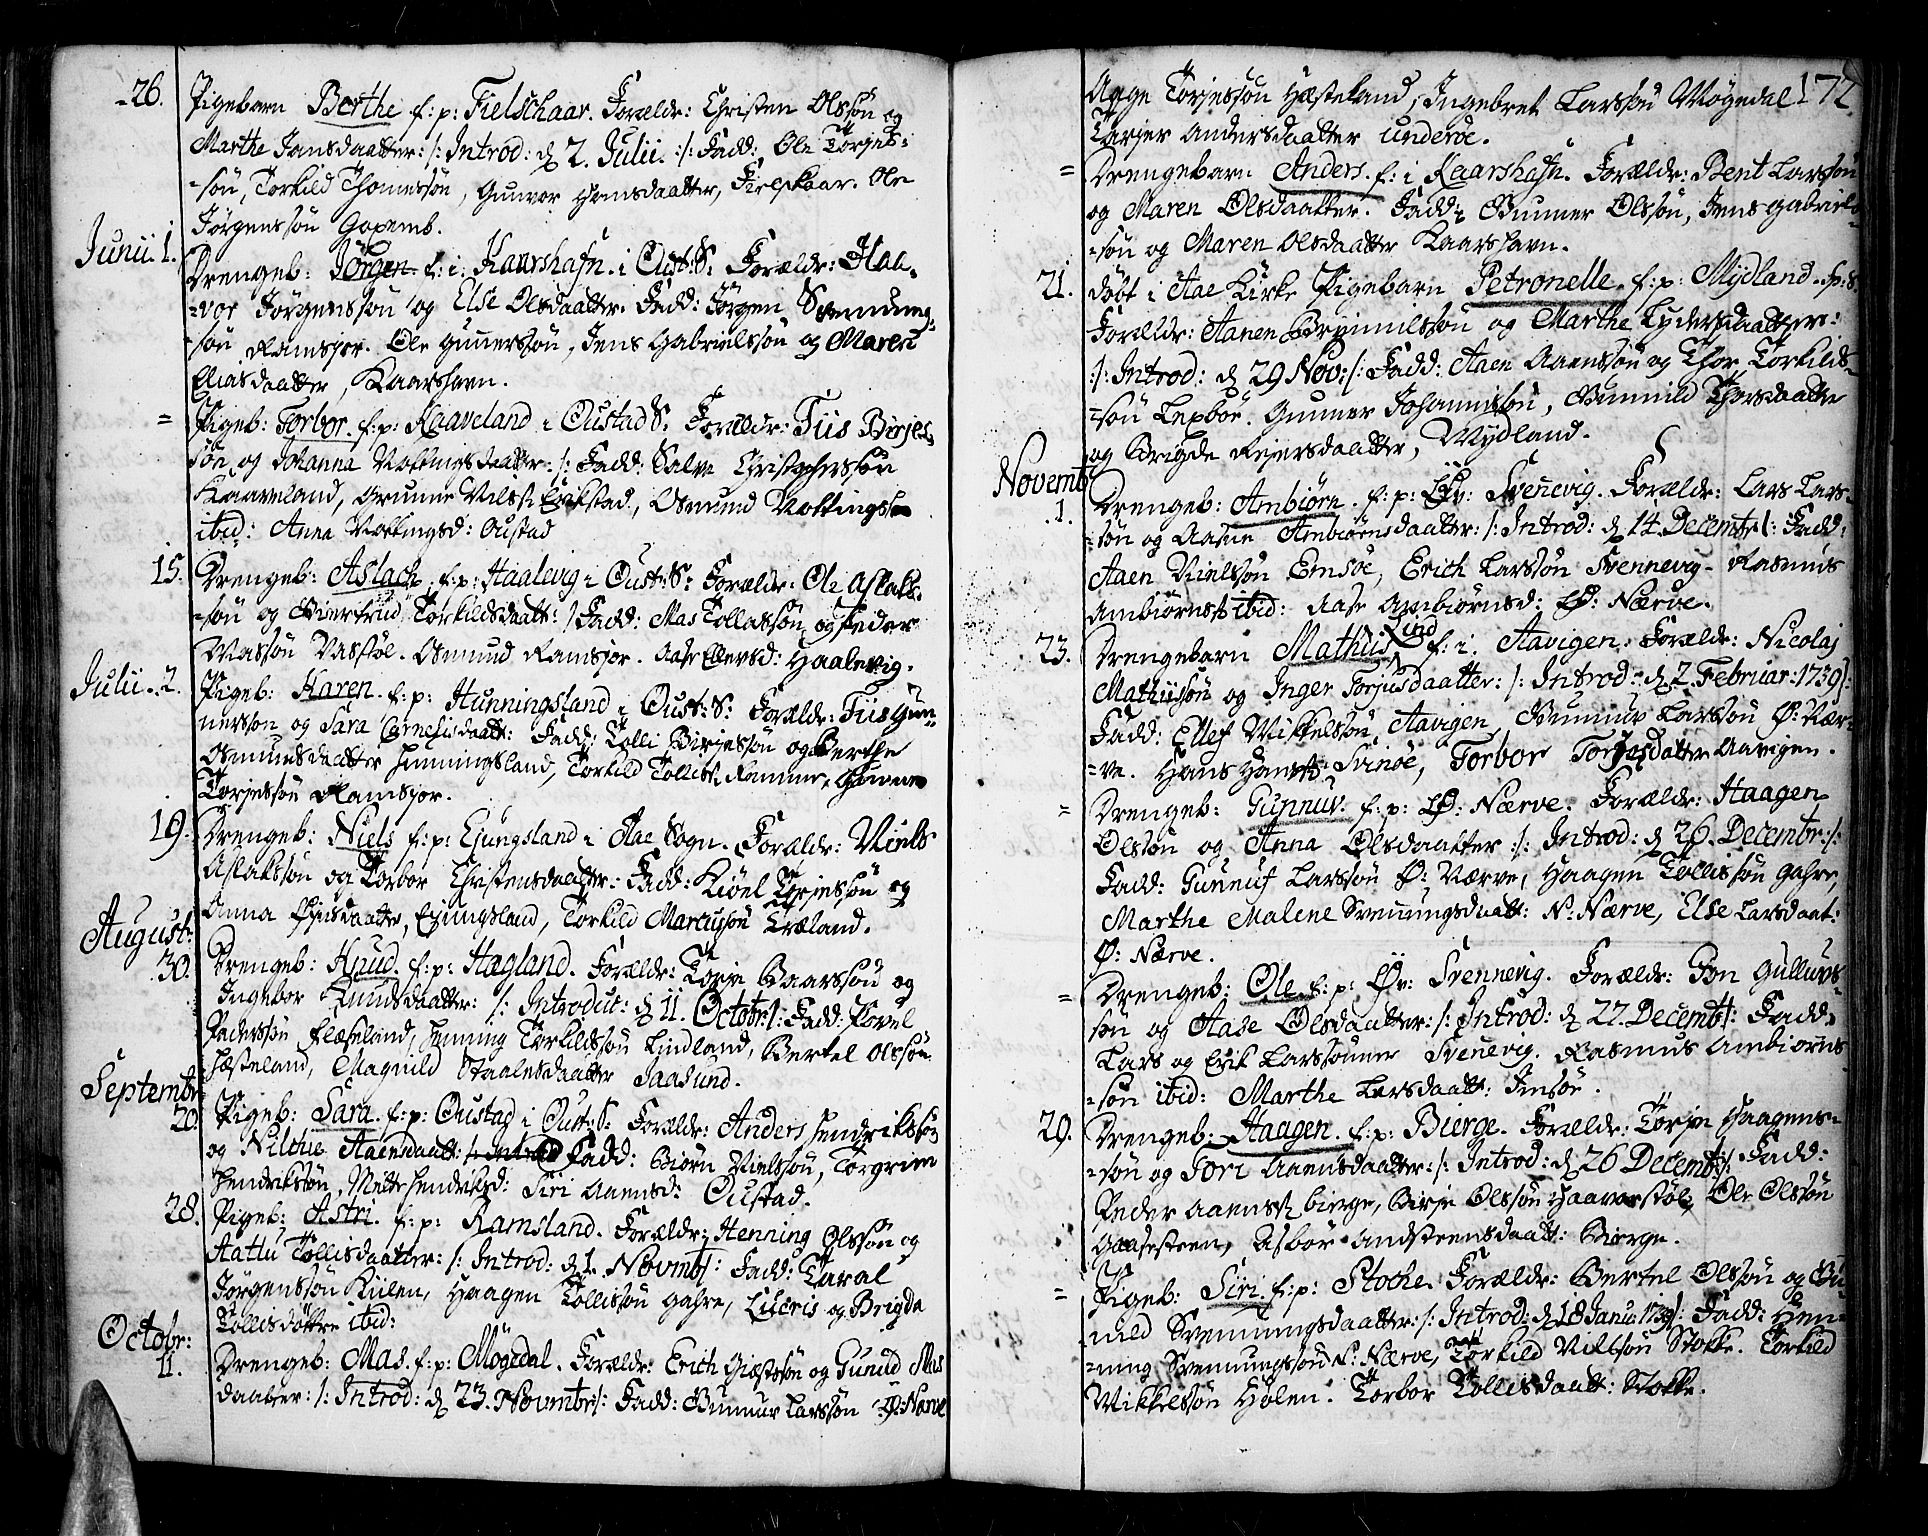 26. Pigebarn Berthe f: p: Fielschaar. Forældr: Christen Olssøn og
Marthe Jansdaatter: /: Introd: d 2. Julii. :/: Fadd: Ole Torjes-
-søn, Torkild Thomessøn, Gunvor Hansdaatter, Fielskaar. Ole
Jørgenssøn
Junii. 1. Drengeb: Jørgen f: i: Kaarshafn. i Oust: S: Forældr: Haa-
-vor Jørgenssøn og Else Olsdaatter. Fadd: Jørgen Svennung-
-søn Ramsjor. Ole Gunerssøn, Jens Gabrielssøn og Maren
Eliasdaatter, Kaarshavn.
= Pigeb: Torbor. f: p: Kaaveland i Oustad S: Forældr: Tiis Birjes-
søn og Johanna Nottingsdaatter. /: Fadd: Salve Christophersøn
Kaaveland, Grunne Nilss: Erikstad, Osmund Nottingss:
ibid: Anna Nottingsd: Oustad
15. Drengeb: Aslach f: p: Haalevig i Oust: S: Forældr: Ole Aslaks-
-søn og Giertrud Torkildsdaatt: / Fadd: Mas Tollassøn og Peder
Massøn Vasstøl. Osmund Ramsjor. Aase Ellevsd: Haalevig.
Julii. 2. Pigeb: Karen. f: p: Hunningsland i Oust: S: Forældr: Tiis Gun-
nerson og Sara Cornelisdaatt: Fadd: Tolli Birjessøn og Berthe
Osmundsdaatter Hunningsland, Torkild Tolliss: Ramme, Gunner
Torjessøn Ramsjor.
19. Drengeb: Niels f: p: Ejungsland i Aae Sogn. Forældr: Niels
Aslakssøn og Torbor Christensdaatter. Fadd: Kiøel Torjessøn og
Anna daatter, Ejungsland, Torkild Marcussøn Træland.
August:
30. Drengeb: Knud. f: p: Hægland. Forældr: Torje Baarssøn og
Ingebor Knudsdaatter: /: Introduc: d 11. Octobr: /: Fadd: Povel
Pederssøn Flæseland, Henning Torkildssøn Lindland, Bertel Olssøn
Hæsteland, Magnild Staalesdaatter Jaasund.
Septembr
20. Pigeb: Sara. f: p: Oustad i Oust: S: Forældr: Anders Hendrikssøn
og Nilchie Aaensdaatt: /: Introd Fadd: Biørn Nielssøn, Torgrim
Hendrikssøn, Mette Hendriksd: Siri Aaensd: Oustad.
28. Pigeb: Astri. f: p: Ramsland. Forældr: Henning Olssøn og
Aattu Tollisdaatter: /: Introd: d 1. Novemb: /: Fadd: Taral
Jørgenssøn Kiilen, Haagen Tollissøn Gahre, og Brigda
Tollisdøttre ibid:
Octobr:
11. Drengeb: Mas. f: p: Møgedal. Forældr: Erich Giestssøn og Gunild Mas
daatter: /: Introd: d 23. Novembr: /: Fadd: Gunnuv Larssøn Ø: Nærve
172
Aage Torjessøn Hæsteland, Ingebret Larssøn Møgedal
Torjer Andersdaatter Underøe.
= Drengebarn Anders. f: i Kaarshafn. Forældr: Bent Larssøn
og Maren Olsdaatter. Fadd: Gunner Olssøn, Jens Gabriels-
-søn og Maren Olsdaatter Kaarshavn.
21. Døbt i Aae Kirke Pigebarn Petronelle. f: p: Mydland. S: S:
Forældr: Aanen Brynnilssøn og Marthe Lydersdaatter:
:/: Introd: d 29 Nov: /: Fadd: Aaen Aaenssøn og Thor Torkilds-
-søn Lexbør. Gunner Johannissøn, Gunnild Thorsdaatter
og Brigde Reiersdaatter, Mydland.
Novembr
.1. Drengeb: Ambiørn. f: p: Øv: Svenevig. Forældr: Lars Lars-
-søn og Aasne Ambiørnsdaatter: /: Introd: d 14. Decembr /: Fadd:
Aaen Nielssøn Emsøe, Erich Larssøn Svennevig. Rasmus
Ambiørnss: ibid: Aase Ambiørnsd: Ø: Nærve.
23. Drengebarn Mathiis Lind f: i. Aavigen. Forældr: Nicolaj
Mathiissøn og Inger Torjusdaatter: /: Introd: d 2 Februar: 1739 /:
Fadd: Ellef Mikkelssøn, Aavigen, Gunnuv Larssøn Ø: Nær-
-ve. Hans Hanss: Svinøe, Torbor Torjesdatter Aavigen.
= Drengeb: Gunnuv. f: p: Ø: Nærve. Forældr: Haagen
Olssøn og Anna Olsdaatter :/: Introd: d 26. Decembr: /:
Fadd: Gunnuf Larssøn Ø: Nærve, Haagen Tollissøn Gahre,
Marthe Malene Svenungsdaatt: N: Nærve, Else Larsdaat:
Ø: Nærve.
= Drengeb: Ole. f: p: Øv: Svennevig. Forældr: Gon Gulluvs-
søn og Aase Olsdaatter: /: Introd: d 27. Decemb: /: Fadd:
Lars og Erik Larssønner Svenevig. Rasmus Ambiørns
-søn ibid: Marthe Larsdaatt: Imsøe.
29. Drengeb: Haagen. f: p: Bierge. Forældr: Torje Haagens-
-søn og Tori Aaensdaatter: /: Introd: d 26 Decemb: /: Fadd:
Peder Aaenss: Bierge, Birje Olssøn Haavorstøl, Ole Olssøn
Gaasesteen, Asbor Andsteensdaatt: Bierge.
= Pigeb: Siri. f: p: Stocke. Forældr: Bertel Olssøn og Gu-
nild Svennungsdaatter: /: Introd: d 18 Janu: 1739 /: Fadd: Hen-
-ning Svennungssøn N: Nærve, Torkild Nilssøn Stokke. Torkild
Mikkelssøn Holen. Torbor Tollisdaatt: Stokke.